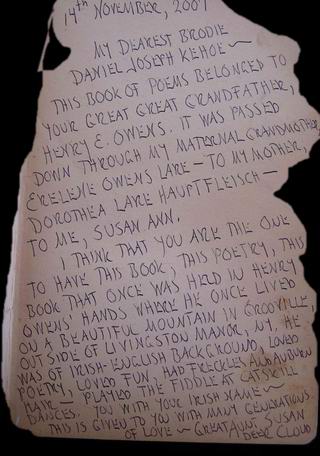 14th NOVEMBER, 2007
MY DEAREST BRODIE
DANIEL JOSEPH KEHOE ~
THIS BOOK OF POEMS BELONGED TO
YOUR GREAT GREAT GRANDFATHER,
HENRY E. OWENS. IT WAS PASSED
DOWN THROUGH MY MATERNAL GRANDMOTHER,
ERELENE OWENS LARE — TO MY MOTHER,
DOROTHEA LARE HAUPTFLEISCH —
TO ME, SUSAN ANN.
I THINK THAT YOU ARE THE ONE
TO HAVE THIS BOOK, THIS POETRY, THIS
BOOK THAT ONCE WAS HELD IN HENRY
OWENS' HANDS WHERE HE ONCE LIVED
ON A BEAUTIFUL MOUNTAIN IN GROOVILLE,
OUTSIDE OF LIVINGSTON MANOR, NY. HE
WAS OF IRISH-ENGLISH BACKGROUND, LOVED
POETRY, LOVED FUN, HAD FRECKLES AND AUBURN
HAIR — PLAYED THE FIDDLE AT CATSKILL
DANCES. YOU WITH YOUR IRISH NAME ~
THIS IS GIVEN TO YOU WITH MANY GENERATIONS
OF LOVE ~ GREAT AUNT SUSAN
DEER CLOUD